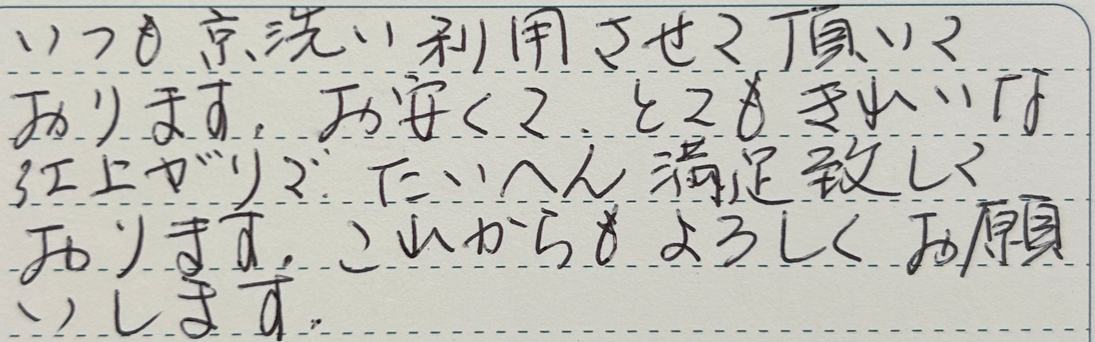 いつも京洗い利用させて頂いて
おります。お安くて、とてもきれいな
仕上がりで、たいへん満足致して
おります。これからもよろしくお願
いします。